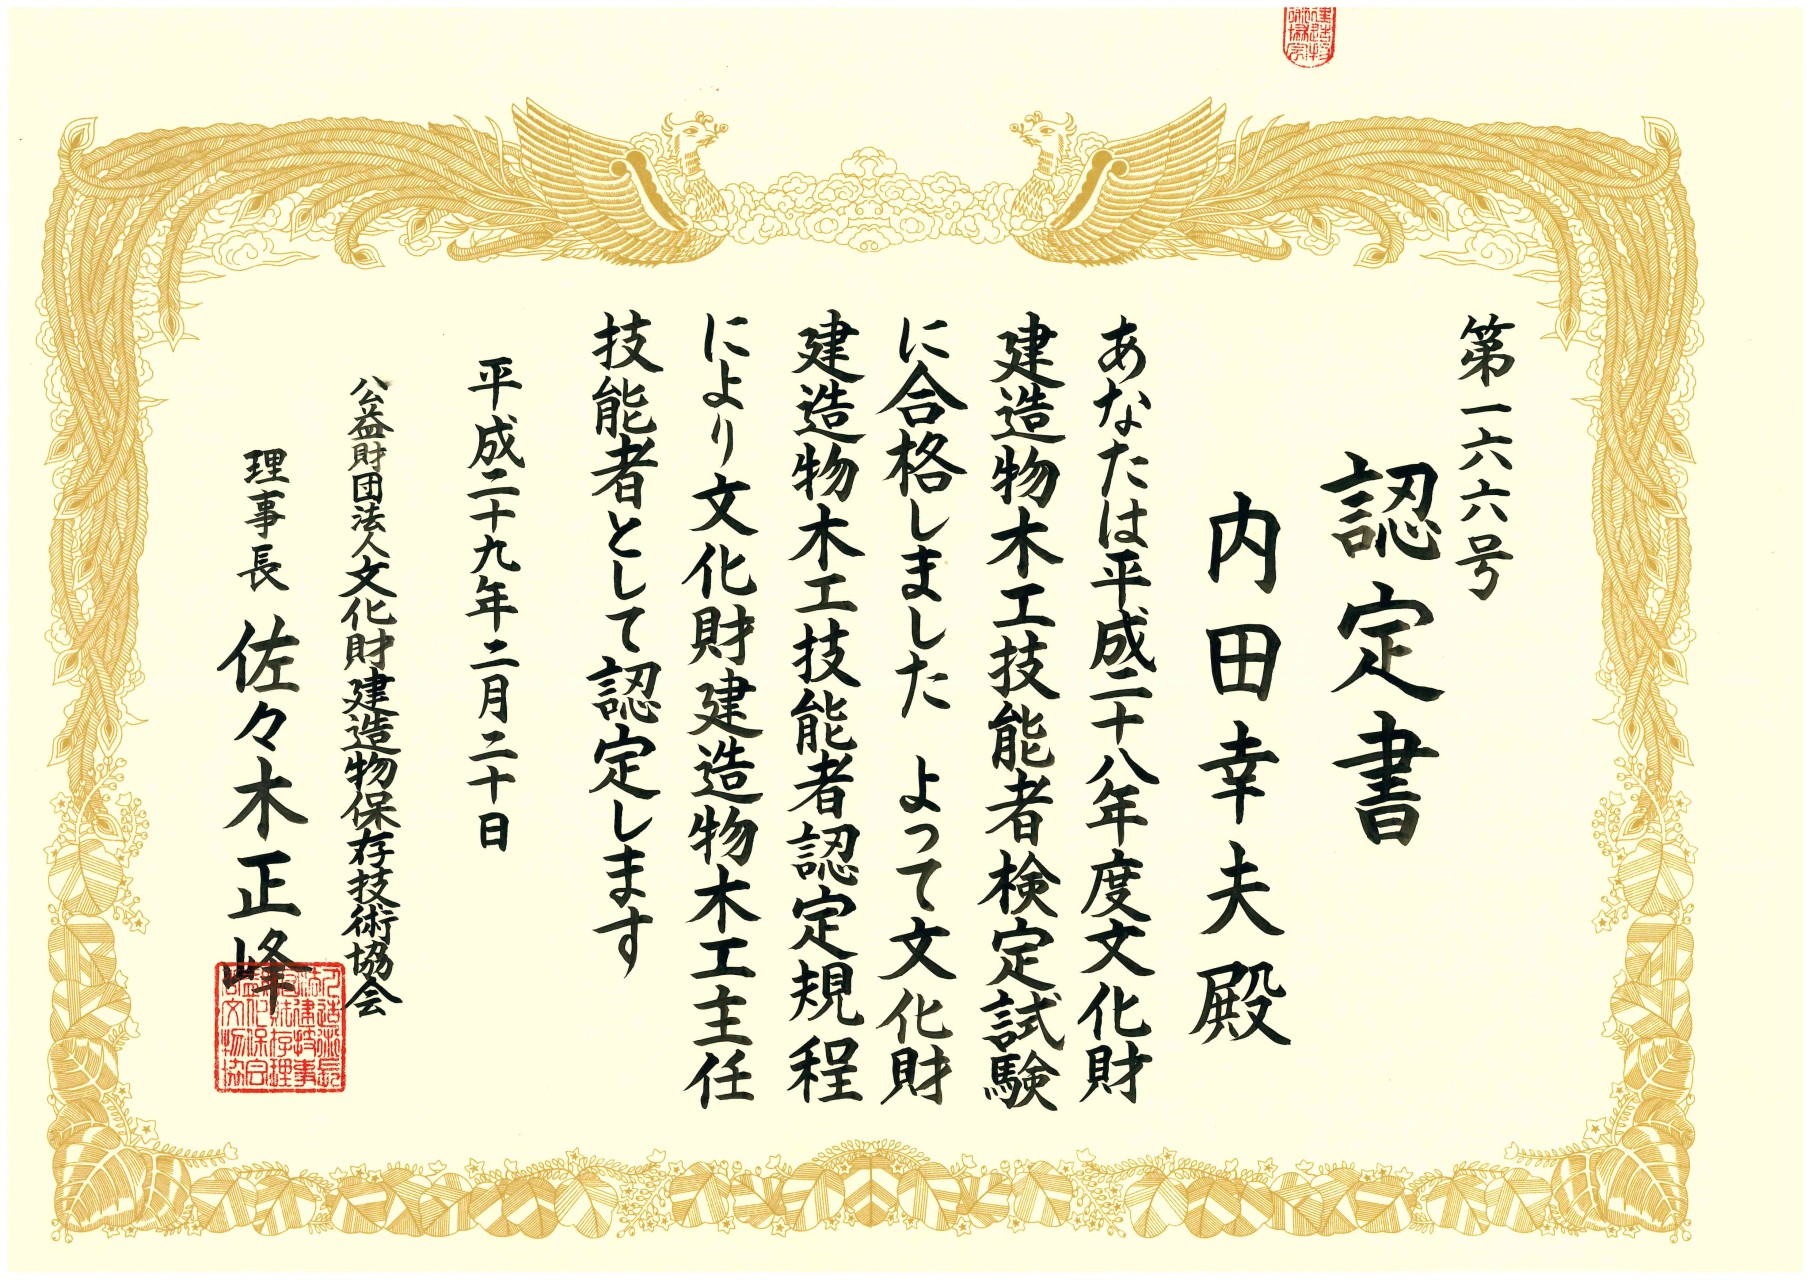 第一六六号
認定書
内田幸夫殿
あなたは平成二十八年度文化財
建造物木工技能者検定試験
に合格しました よって文化財
建造物木工技能者認定規程
により文化財建造物木工主任
技能者として認定します
平成二十九年二月二十日
公益財団法人文化財建造物保存技術協会
理事長 佐々木正峰